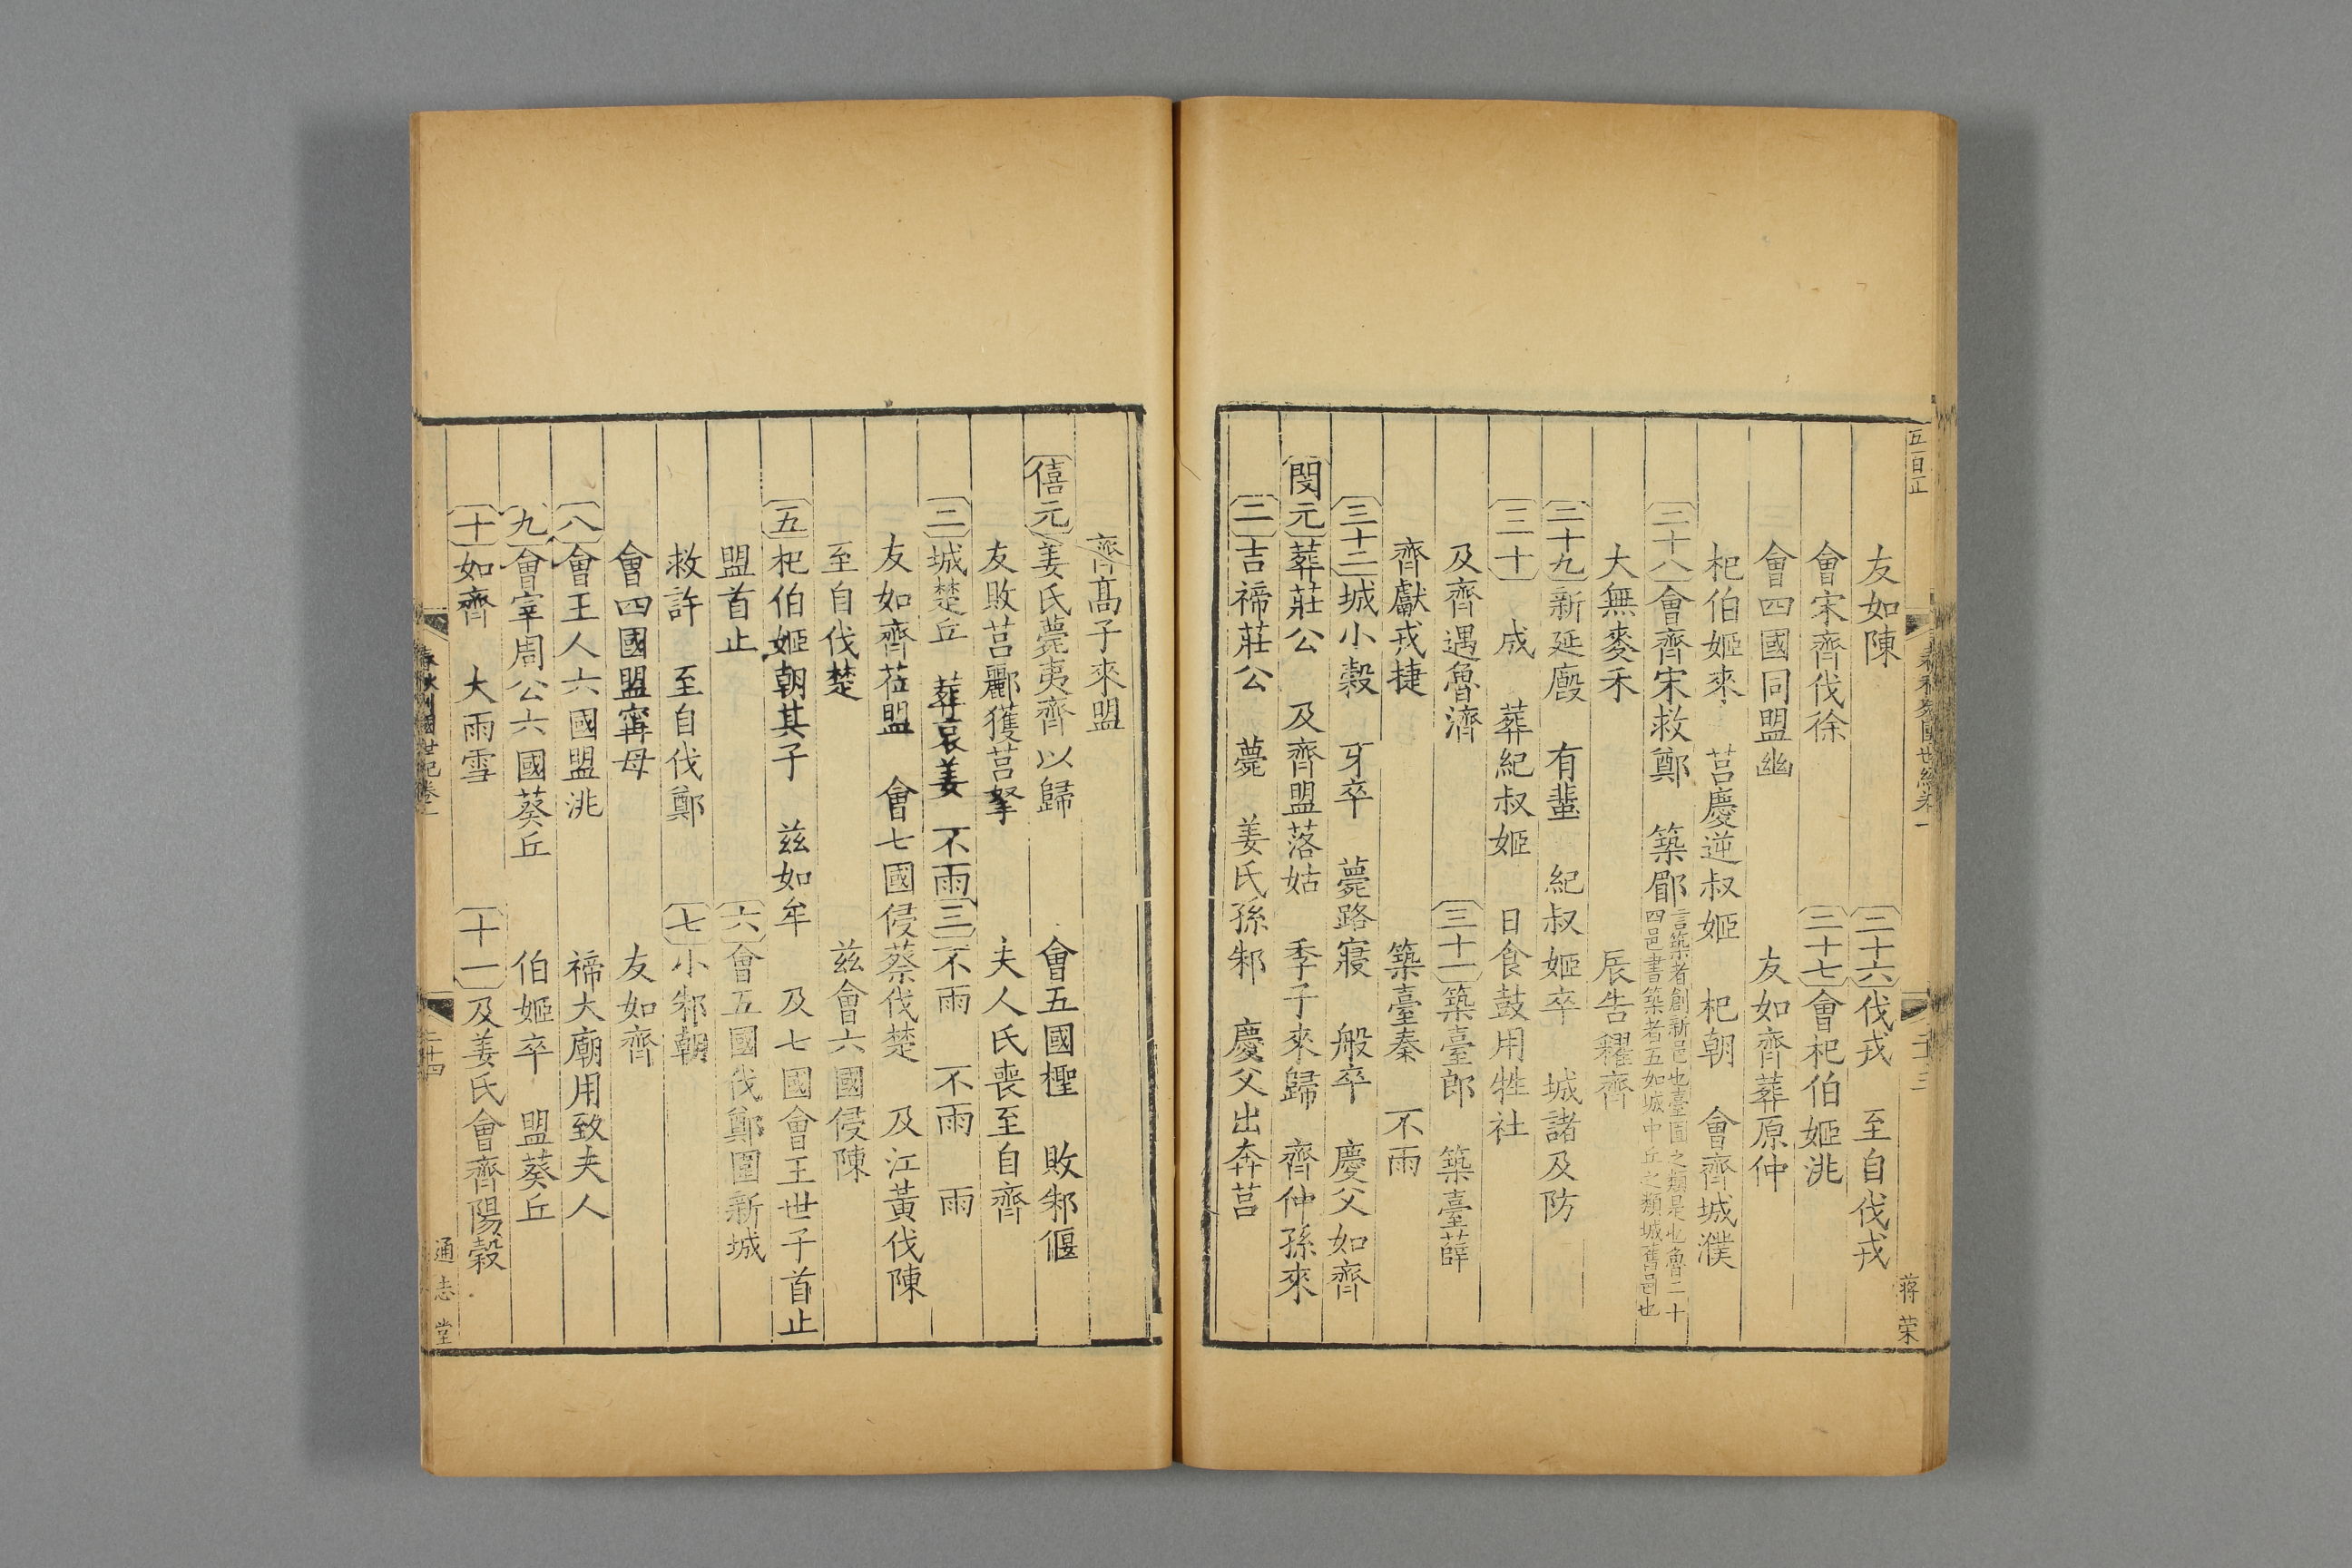 友如陳 二十六 伐戎 至自伐戎
會宋齊伐徐 二十七 會杞伯姬洮
會四國同盟幽 友如齊葬原仲
杞伯姬來 莒慶逆叔姬 杞朝 會齊城濮
二十八 會齊宋救鄭 築郿 言築者創新邑也臺囿之類是也魯二十
四邑書築者五如城中丘之類城舊邑也
大無麥禾 辰告糴齊
二十九 新延廏 有蜚 紀叔姬卒 城諸及防
三十 成 葬紀叔姬 日食鼓用牲社
及齊遇魯濟 三十一 築臺郎 築臺薛
齊獻戎捷 築臺秦 不雨
三十二 城小穀 牙卒 薨路寢 般卒 慶父如齊
閔元 葬莊公 及齊盟落姑 季子來歸 齊仲孫來
二 吉禘莊公 薨 姜氏孫邾 慶父出奔莒
蒋荣
齊高子來盟
僖元 姜氏薨夷齊以歸 會五國檉 敗邾偃
友敗莒酈獲莒拏 夫人氏喪至自齊
二 城楚丘 葬哀姜 不雨 三 不雨 不雨 雨
友如齊莅盟 會七國侵蔡伐楚 及江黃伐陳
至自伐楚 兹會六國侵陳
五 杞伯姬朝其子 兹如牟 及七國會王世子首止
盟首止 六 會五國伐鄭圍新城
救許 至自伐鄭 七 小邾朝
會四國盟甯母 友如齊
八 會王人六國盟洮 禘大廟用致夫人
九 會宰周公六國葵丘 伯姬卒 盟葵丘
十 如齊 大雨雪 十一 及姜氏會齊陽穀
春秋列國世紀卷一
二十四
通志堂